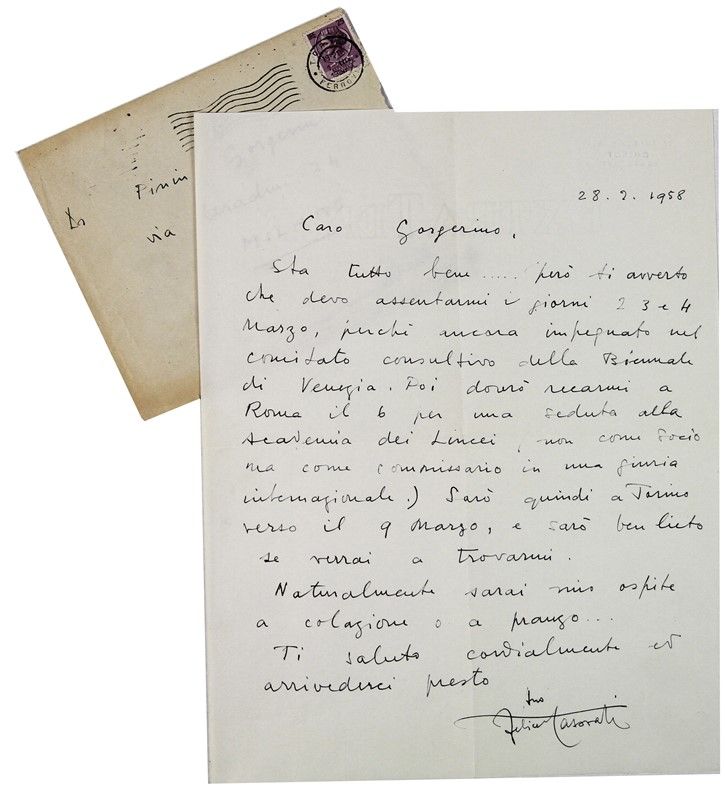 28.2.1958
Caro Gorgerino,
Sta tutto bene ..... però ti avverto
che devo assentarmi i giorni 2 3 e 4
Marzo, perché ancora impegnato nel
comitato consultivo della Biennale
di Venezia. Poi dovrò recarmi a
Roma il 6 per una seduta alla
Accademia dei Lincei, non come socio
ma come commissario in una giuria
internazionale.) Sarò quindi a Torino
verso il 9 Marzo, e sarò ben lieto
se verrai a trovarmi.
Naturalmente sarai mio ospite
a colazione o a pranzo...
Ti saluto cordialmente ed
arrivederci presto
tuo
Felice Casorati
via